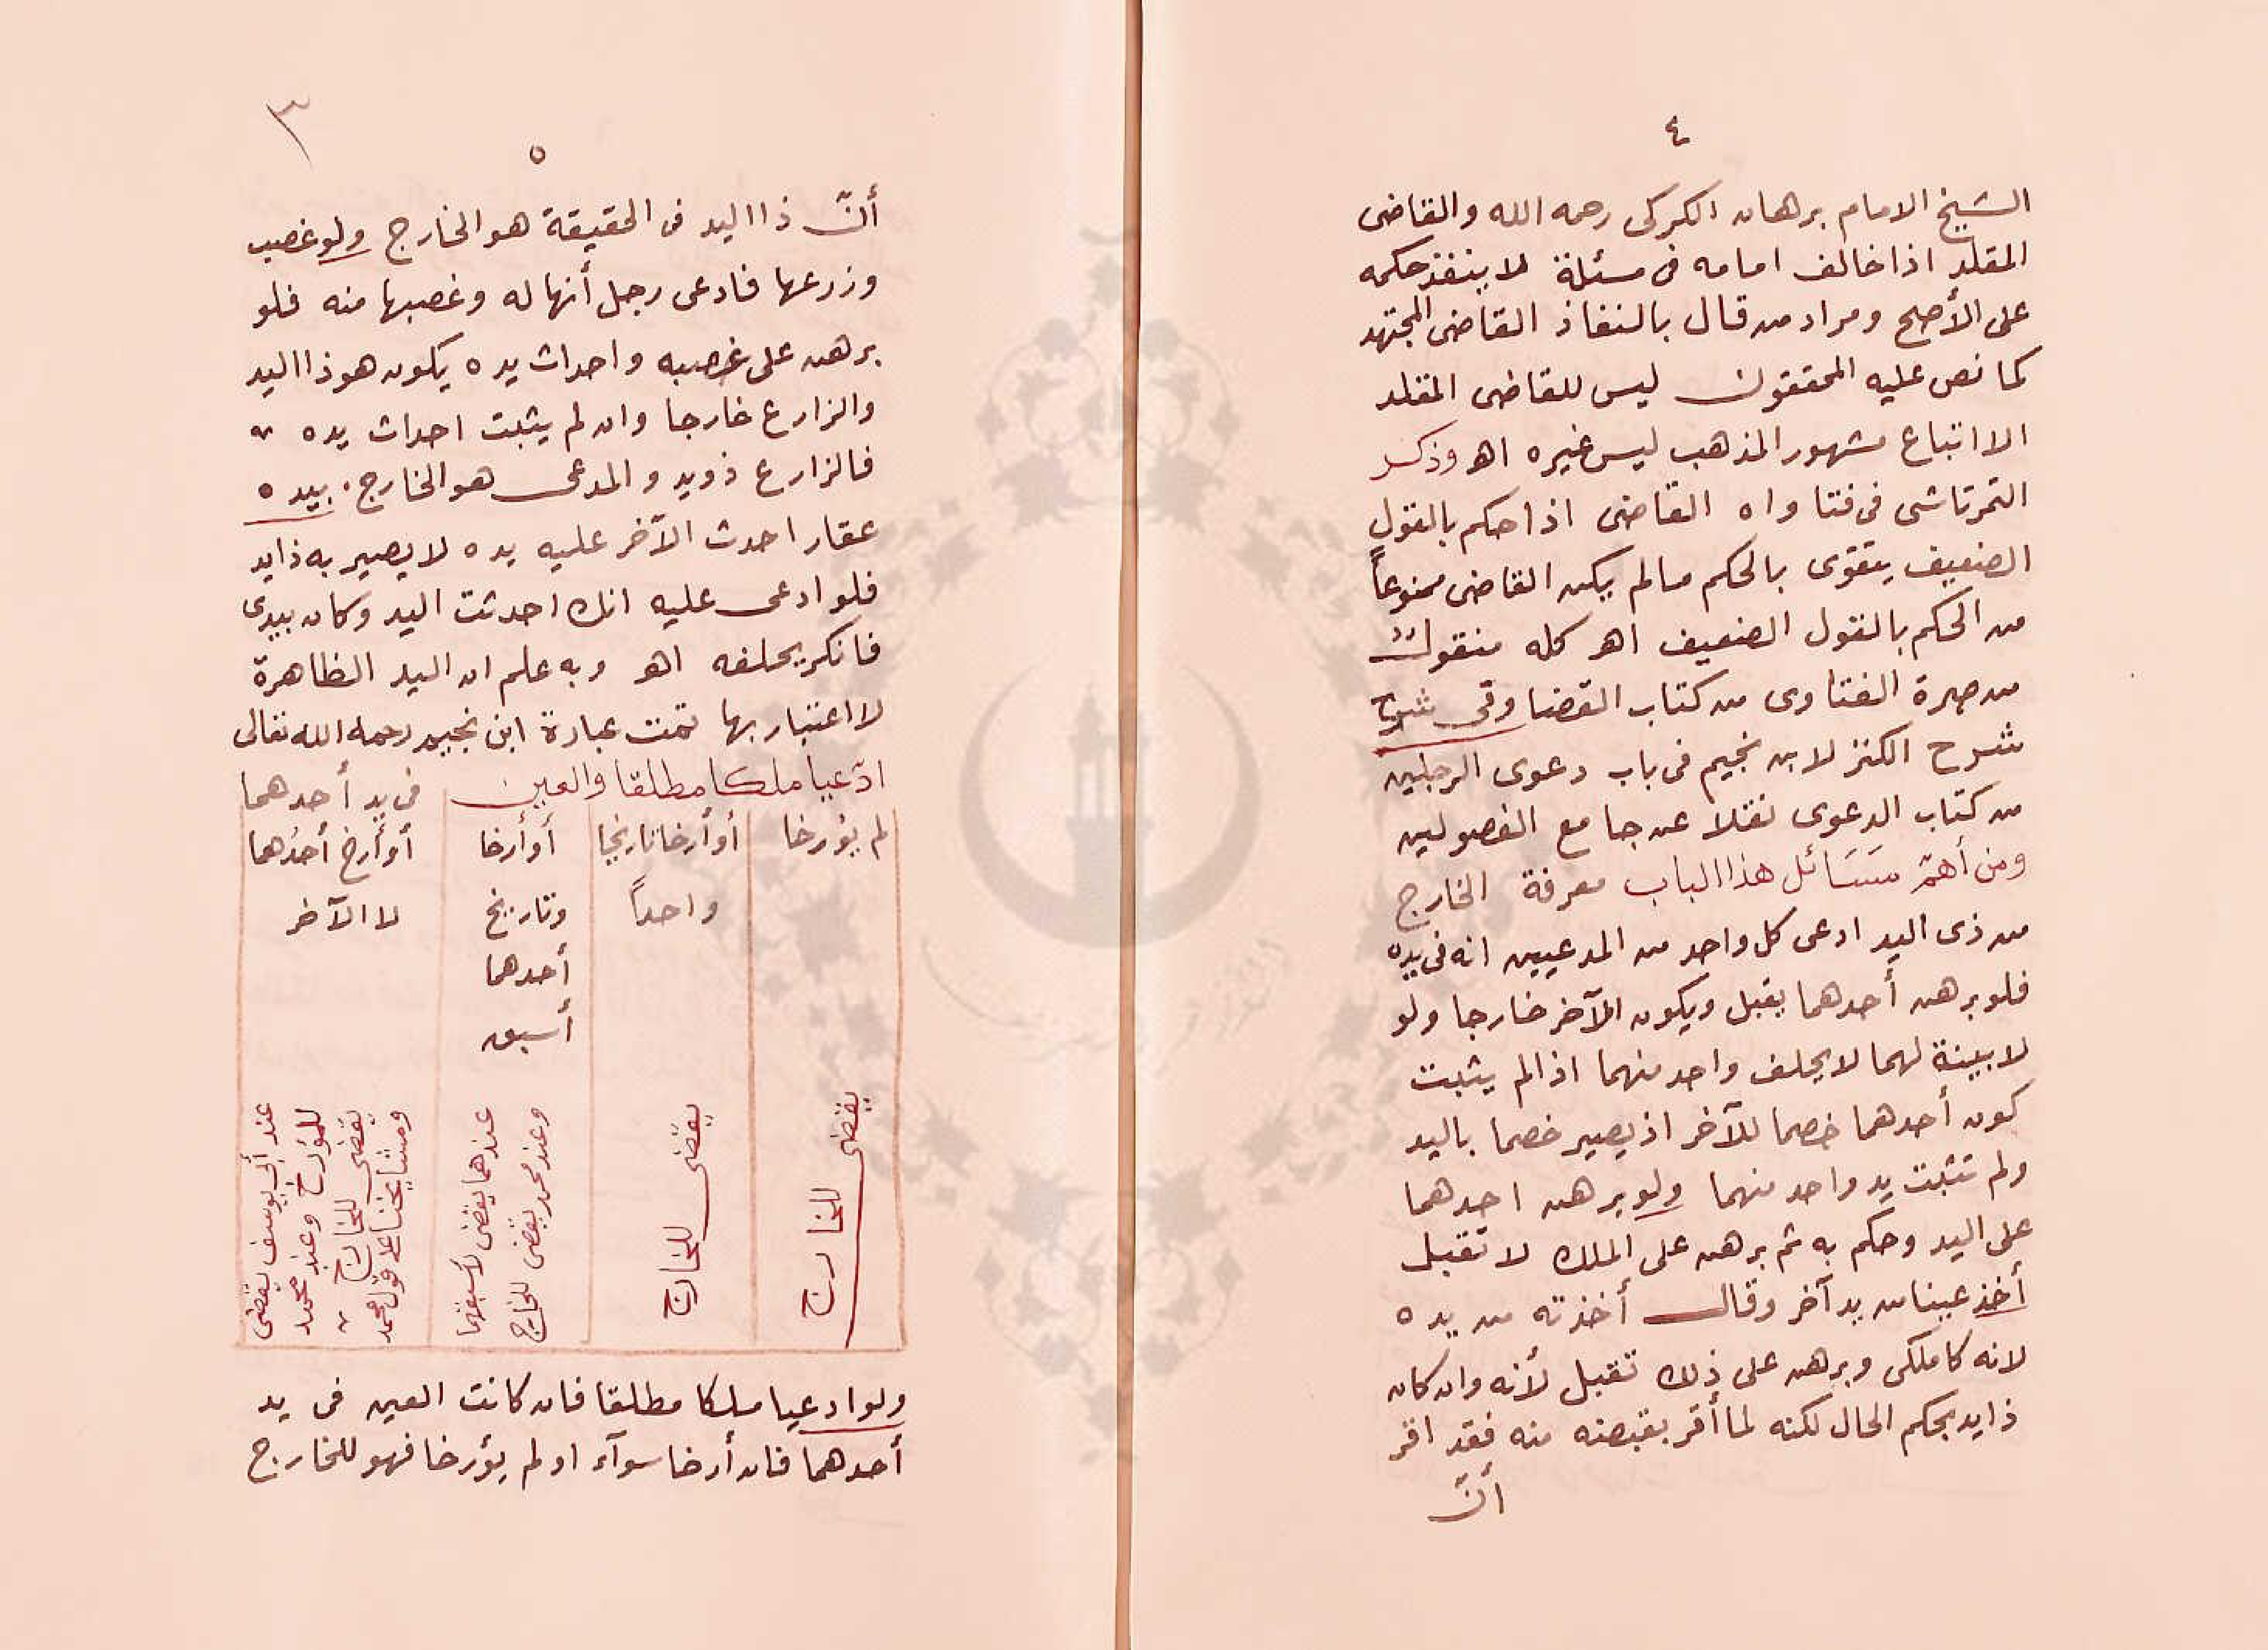 ٤
الشيخ الامام برهان الكركى رحمه الله والقاضى
المقلد اذا خالف امامه فى مسئلة لا ينفذ حكمه
على الأصح ومراد من قال بالنفاذ القاضى المجتهد
كما نص عليه المحققون ليس للقاضى المقلد
الا اتباع مشهور المذهب ليس غيره اهـ وذكر
التمرتاشى فى فتاواه القاضى اذا حكم بالقول
الضعيف يتقوى بالحكم مالم يكن القاضى ممنوعاً
من الحكم بالقول الضعيف اهـ كله منقول
من صرة الفتاوى من كتاب القضا وفى شرح
شرح الكنز لابن نجيم فى باب دعوى الرجلين
من كتاب الدعوى نقلا عن جامع الفصولين
ومن أهمّ مسَائل هذا الباب معرفة الخارج
من ذى اليد ادعى كل واحد من المدعيين انه فى يده
فلو برهن أحدهما يقبل ويكون الآخر خارجا ولو
لا بينة لهما لا يحلف واحد منهما اذا لم يثبت
كون أحدهما خصما للآخر اذ يصير خصما باليد
ولم تثبت يد واحد منهما ولو برهن احدهما
على اليد وحكم به ثم برهن على الملك لا تقبل
أخذ عينا من يد آخر وقال أخذته من يده
لانه كا ملكى وبرهن على ذلك تقبل لأنه وان كان
ذا يد بحكم الحال لكنه لما أقر بقبضه منه فقد اقر
أنّ
٣
٥
أنّ ذا اليد فى الحقيقة هو الخارج ولو غصب
وزرعها فادعى رجل أنها له وغصبها منه فلو
برهن على غصبه واحداث يده يكون هو ذا اليد
والزارع خارجا وان لم يثبت احداث يده
فالزارع ذويد والمدعى هو الخارج . بيده
عقار احدث الآخر عليه يده لا يصير به ذا يد
فلو ادعى عليه انك احدثت اليد وكان بيدى
فانكر يحلفه اهـ وبه علم ان اليد الظاهرة
لا اعتبار بها تمت عبارة ابن نجيم رحمه الله تعالى
ادّعيا ملكا مطلقا والعين فى يد أحدهما
لم يؤرخا
أو أرخا تاريخا
واحداً
أو أرخا
وتاريخ
أحدهما
أسبق
أو أرخ أحدهما
لا الآخر
يقضى للخارج
يقضى للخارج
عندهما يقضى لأسبقهما
وعند محمد يقضى للخارج
عند أبى يوسف يقضى
للمؤرخ وعند محمد
يقضى للخارج
ومشايخنا على قول محمد
ولو ادعيا ملكا مطلقا فان كانت العين فى يد
أحدهما فان أرخا سوآء او لم يؤرخا فهو للخارج